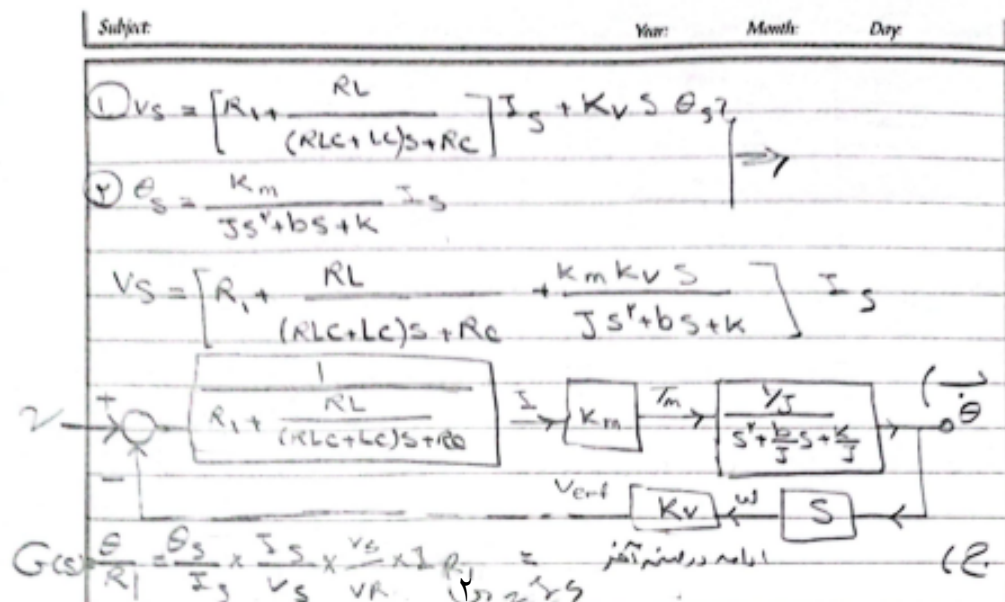 Subject: Year: Month: Day:
① V_S = [R_1 + RL / ((RLC+LC)S+RC)] I_S + K_V S θ_S
⇒
② θ_S = K_m / (JS^۲+bS+K) I_S
V_S = [R_1 + RL / ((RLC+LC)S+RC) + K_m K_V S / (JS^۲+bS+K)] I_S
V + − 1 / (R_1 + RL / ((RLC+LC)S+RC)) I K_m T_m (1/J) / (S^۲ + (b/J)S + K/J) θ
K_V ω S
G(s) θ/R_1 = θ_S/I_S × I_S/V_S × V_S/VR × I =